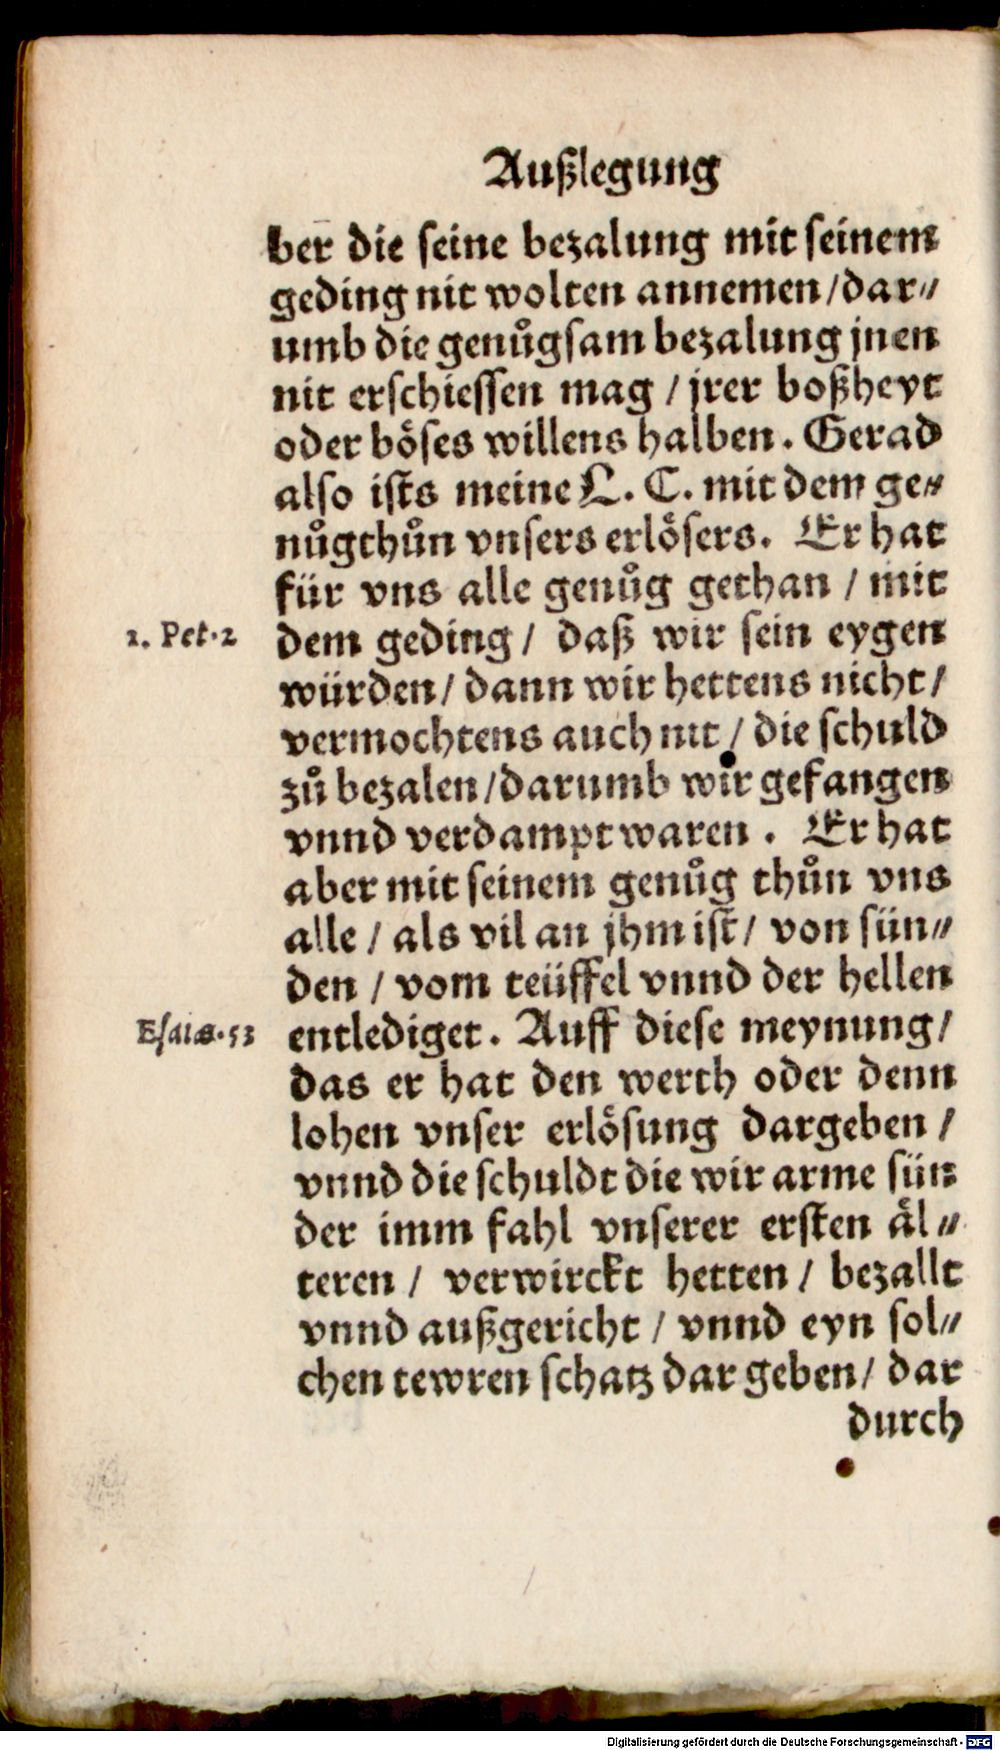 Außlegung
ber die seine bezalung mit seinem
geding nit wolten annemen / dar⸗
umb die genůgsam bezalung jnen
nit erschiessen mag / jrer boßheyt
oder böses willens halben. Gerad
also ists meine L. C. mit dem ge⸗
nůgthůn vnsers erlösers. Er hat
für vns alle genůg gethan / mit
1. Pet. 2
dem geding / daß wir sein eygen
würden / dann wir hettens nicht /
vermochtens auch nit / die schuld
zů bezalen / darumb wir gefangen
vnnd verdampt waren. Er hat
aber mit seinem genůg thůn vns
alle / als vil an jhm ist / von sün⸗
den / vom teüffel vnnd der hellen
Esaiæ. 53
entlediget. Auff diese meynung /
das er hat den werth oder denn
lohen vnser erlösung dargeben /
vnnd die schuldt die wir arme sün⸗
der imm fahl vnserer ersten äl⸗
teren / verwirckt hetten / bezallt
vnnd außgericht / vnnd eyn sol⸗
chen tewren schatz dar geben / dar
durch
Digitalisierung gefördert durch die Deutsche Forschungsgemeinschaft - DFG